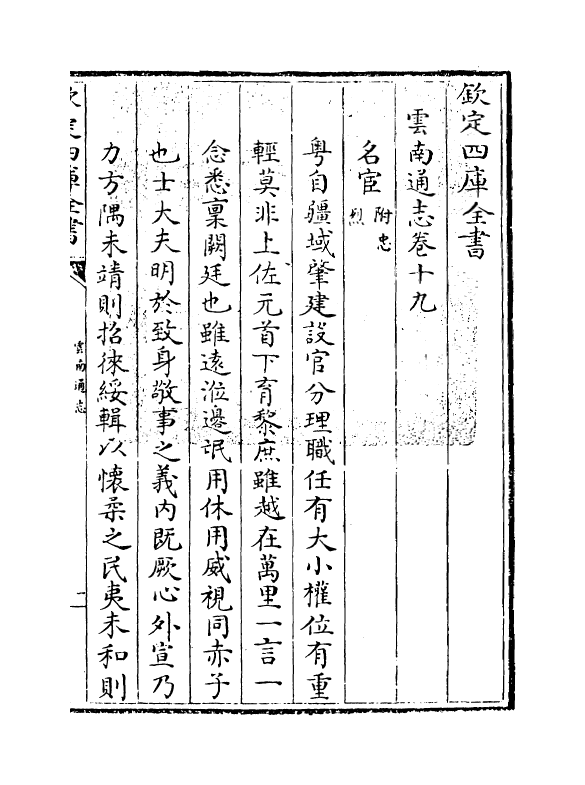 欽定四庫全書
雲南通志卷十九
名宦附忠烈
粤自疆域肇建設官分理職任有大小權位有重
輕莫非上佐元首下育黎庶雖越在萬里一言一
念悉稟闕廷也雖遠涖邊氓用休用威視同赤子
也士大夫明於致身敬事之義内既厥心外宣乃
力方隅未靖則招徠綏輯以懷柔之民夷未和則
欽定四庫全書
雲南通志